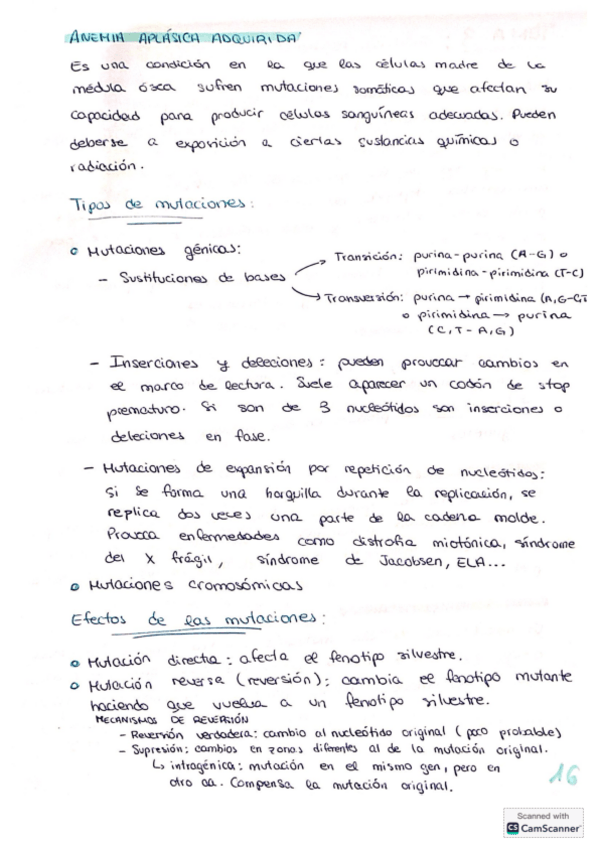 ANEMIA APLÁSICA ADQUIRIDA
Es una condición en la que las células madre de la
médula ósea sufren mutaciones somáticas que afectan su
capacidad para producir células sanguíneas adecuadas. Pueden
deberse a exposición a ciertas sustancias químicas o
radiación.
Tipos de mutaciones:
Mutaciones génicas:
- Sustituciones de bases
Transición: purina-purina (A-G) o
pirimidina-pirimidina (T-C)
Transversión: purina → pirimidina (A,G-C,T
o pirimidina → purina
(C,T-A,G)
- Inserciones y deleciones: pueden provocar cambios en
el marco de lectura. Suele aparecer un codón de stop
prematuro. Si son de 3 nucleótidos son inserciones o
deleciones en fase.
- Mutaciones de expansión por repetición de nucleótidos:
Si se forma una horquilla durante la replicación, se
replica dos veces una parte de la cadena molde.
Provoca enfermedades como distrofia miotónica, síndrome
del X frágil, síndrome de Jacobsen, ELA...
Mutaciones cromosómicas
Efectos de las mutaciones:
Mutación directa: afecta el fenotipo silvestre.
Mutación reversa (reversión): cambia el fenotipo mutante
haciendo que vuelva a un fenotipo silvestre.
MECANISMOS DE REVERSIÓN
- Reversión verdadera: cambio al nucleótido original (poco probable)
- Supresión: cambios en zonas diferentes al de la mutación original.
↳ intragénica: mutación en el mismo gen, pero en
otro aa. Compensa la mutación original.
16
Scanned with
CS CamScanner